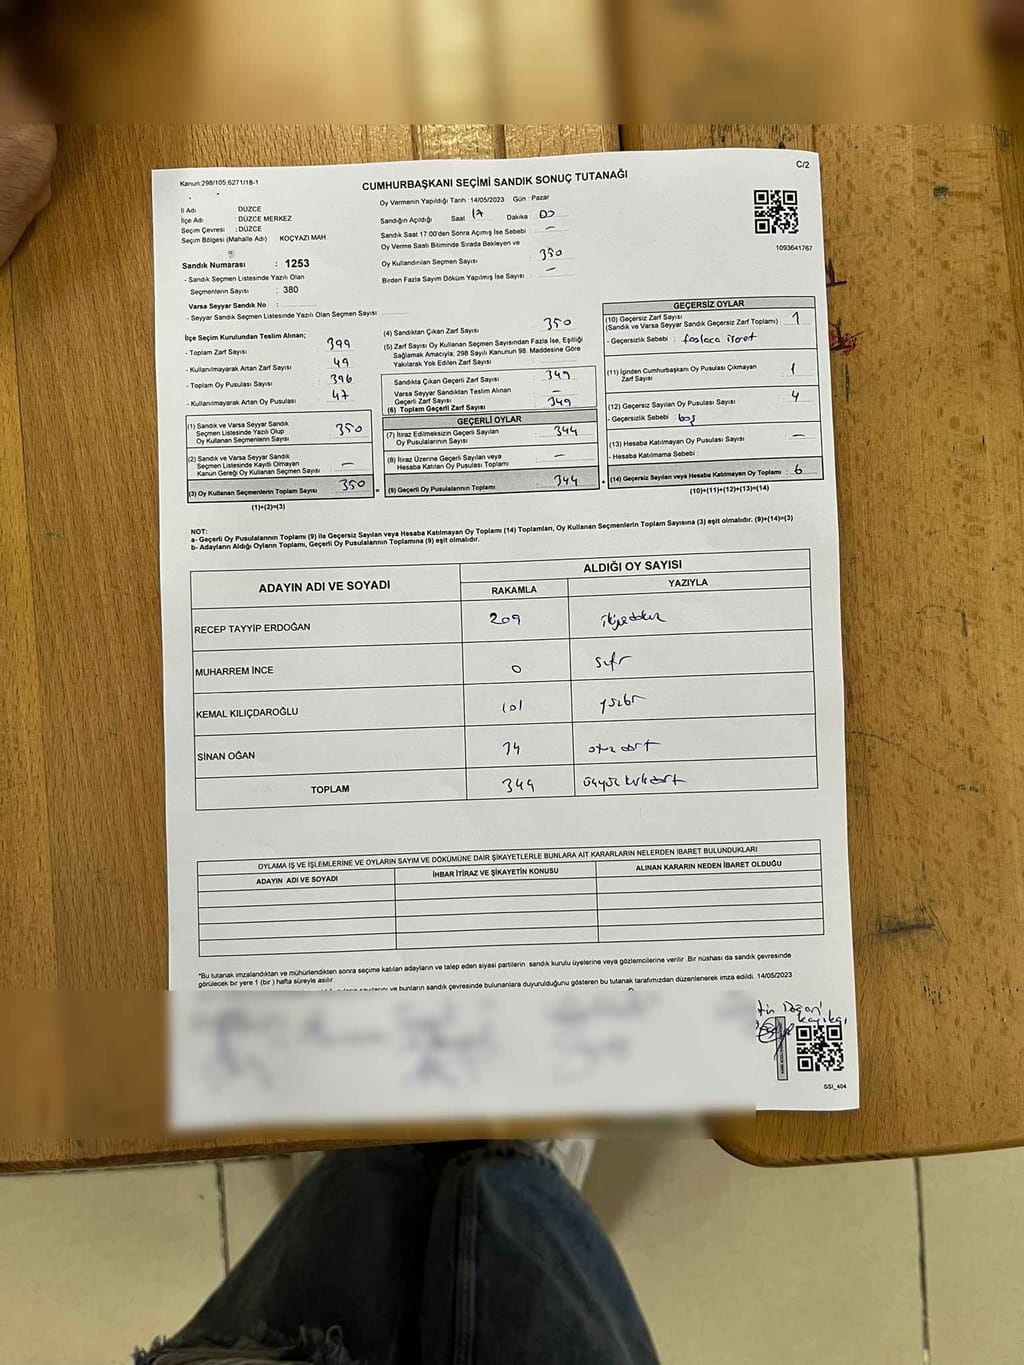 C/2
Kanun:298/105;6271/18-1
CUMHURBAŞKANI SEÇİMİ SANDIK SONUÇ TUTANAĞI
İl Adı : DÜZCE
İlçe Adı : DÜZCE MERKEZ
Seçim Çevresi : DÜZCE
Seçim Bölgesi (Mahalle Adı) : KOÇYAZI MAH.
Sandık Numarası : 1253
- Sandık Seçmen Listesinde Yazılı Olan
Seçmenlerin Sayısı : 380
Varsa Seyyar Sandık No :
- Seyyar Sandık Seçmen Listesinde Yazılı Olan Seçmen Sayısı :
Oy Vermenin Yapıldığı Tarih :14/05/2023 Gün : Pazar
Sandığın Açıldığı Saat : 17 Dakika : 00
Sandık Saat 17:00'den Sonra Açımış İse Sebebi : —
Oy Verme Saati Bitiminde Sırada Bekleyen ve
Oy Kullandırılan Seçmen Sayısı : 350
Birden Fazla Sayım Döküm Yapılmış İse Sayısı : —
1093641767
İlçe Seçim Kurulundan Teslim Alınan;
- Toplam Zarf Sayısı : 399
- Kullanılmayarak Artan Zarf Sayısı : 49
- Toplam Oy Pusulası Sayısı : 396
- Kullanılmayarak Artan Oy Pusulası : 47
(1) Sandık ve Varsa Seyyar Sandık
Seçmen Listesinde Yazılı Olup
Oy Kullanan Seçmenlerin Sayısı : 350
(2) Sandık ve Varsa Seyyar Sandık
Seçmen Listesinde Kayıtlı Olmayan
Kanun Gereği Oy Kullanan Seçmen Sayısı : —
(3) Oy Kullanan Seçmenlerin Toplam Sayısı : 350
(1)+(2)=(3)
(4) Sandıktan Çıkan Zarf Sayısı : 350
(5) Zarf Sayısı Oy Kullanan Seçmen Sayısından Fazla İse, Eşitliği
Sağlamak Amacıyla; 298 Sayılı Kanunun 98. Maddesine Göre
Yakılarak Yok Edilen Zarf Sayısı :
Sandıkta Çıkan Geçerli Zarf Sayısı : 349
Varsa Seyyar Sandıktan Teslim Alınan
Geçerli Zarf Sayısı : —
(6) Toplam Geçerli Zarf Sayısı : 349
GEÇERLİ OYLAR
(7) İtiraz Edilmeksizin Geçerli Sayılan
Oy Pusulalarının Sayısı : 344
(8) İtiraz Üzerine Geçerli Sayılan veya
Hesaba Katılan Oy Pusulası Toplamı : —
(9) Geçerli Oy Pusulalarının Toplamı : 344
GEÇERSİZ OYLAR
(10) Geçersiz Zarf Sayısı
(Sandık ve Varsa Seyyar Sandık Geçersiz Zarf Toplamı) : 1
- Geçersizlik Sebebi : fazlaca işaret
(11) İçinden Cumhurbaşkanı Oy Pusulası Çıkmayan
Zarf Sayısı : 1
(12) Geçersiz Sayılan Oy Pusulası Sayısı : 4
- Geçersizlik Sebebi : boş
(13) Hesaba Katılmayan Oy Pusulası Sayısı : —
- Hesaba Katılmama Sebebi :
(14) Geçersiz Sayılan veya Hesaba Katılmayan Oy Toplamı : 6
(10)+(11)+(12)+(13)=(14)
NOT:
a- Geçerli Oy Pusulalarının Toplamı (9) ile Geçersiz Sayılan veya Hesaba Katılmayan Oy Toplamı (14) Toplamları, Oy Kullanan Seçmenlerin Toplam Sayısına (3) eşit olmalıdır. (9)+(14)=(3)
b- Adayların Aldığı Oyların Toplamı, Geçerli Oy Pusulalarının Toplamına (9) eşit olmalıdır.
ADAYIN ADI VE SOYADI
ALDIĞI OY SAYISI
RAKAMLA YAZIYLA
RECEP TAYYİP ERDOĞAN 209 ikiyüzdokuz
MUHARREM İNCE 0 sıfır
KEMAL KILIÇDAROĞLU 101 yüzbir
SİNAN OĞAN 34 otuz dört
TOPLAM 344 üçyüz kırkdört
OYLAMA İŞ VE İŞLEMLERİNE VE OYLARIN SAYIM VE DÖKÜMÜNE DAİR ŞİKAYETLERLE BUNLARA AİT KARARLARIN NELERDEN İBARET BULUNDUKLARI
ADAYIN ADI VE SOYADI İHBAR İTİRAZ VE ŞİKAYETİN KONUSU ALINAN KARARIN NEDEN İBARET OLDUĞU
*Bu tutanak imzalandıktan ve mühürlendikten sonra seçime katılan adayların ve talep eden siyasi partilerin sandık kurulu üyelerine veya gözlemcilerine verilir .Bir nüshası da sandık çevresinde
görülecek bir yere 1 (bir ) hafta süreyle asılır.
ve bunların sandık çevresinde bulunanlara duyurulduğunu gösteren bu tutanak tarafımızdan düzenlenerek imza edildi. 14/05/2023
SSI_404